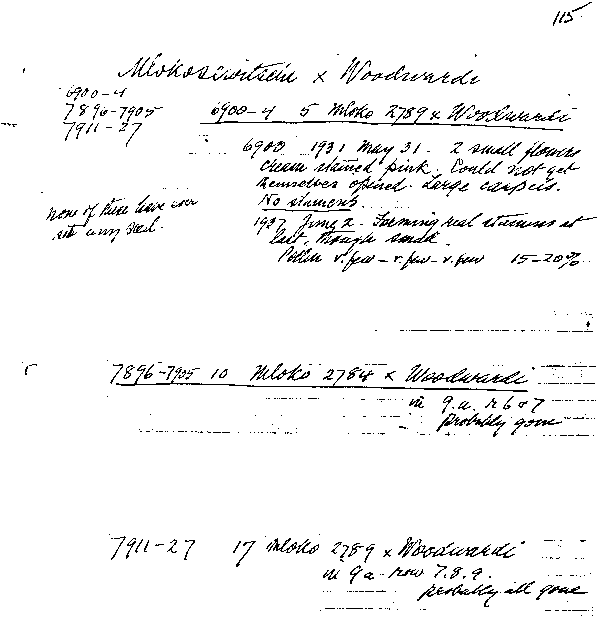 115.
Mlokosiewitschi x Woodwardi
6900-4
7896-7905
7911-27
6900-4 5 Mloko 2789 x Woodwardi
6900 1931 May 31. 2 small flowers
cream stained pink. Could not get
themselves opened. Large carpels.
No stamens.
none of these have ever
set any seed.
1937 June 2. Forming real stamens at
last, though small.
Pollen v. few - v. few - v. few 15-20%.
7896-7905 10 Mloko 2784 x Woodwardi
in 9.a. r. 6 or 7
probably gone
7911-27 17 Mloko 2789 x Woodwardi
in 9a row 7.8.9.
probably all gone